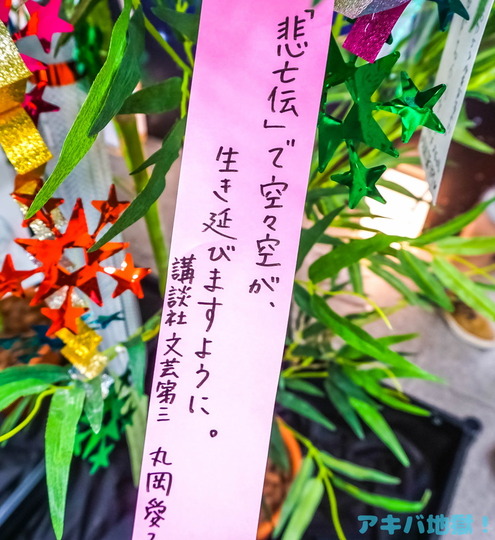 「悲亡伝」で空々空が、
生き延びますように。
講談社 文芸第三 丸岡愛
アキバ地獄！